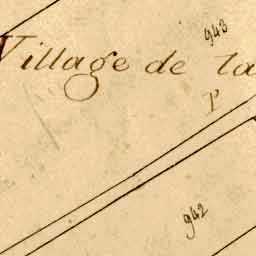 943
Village de la
P
942